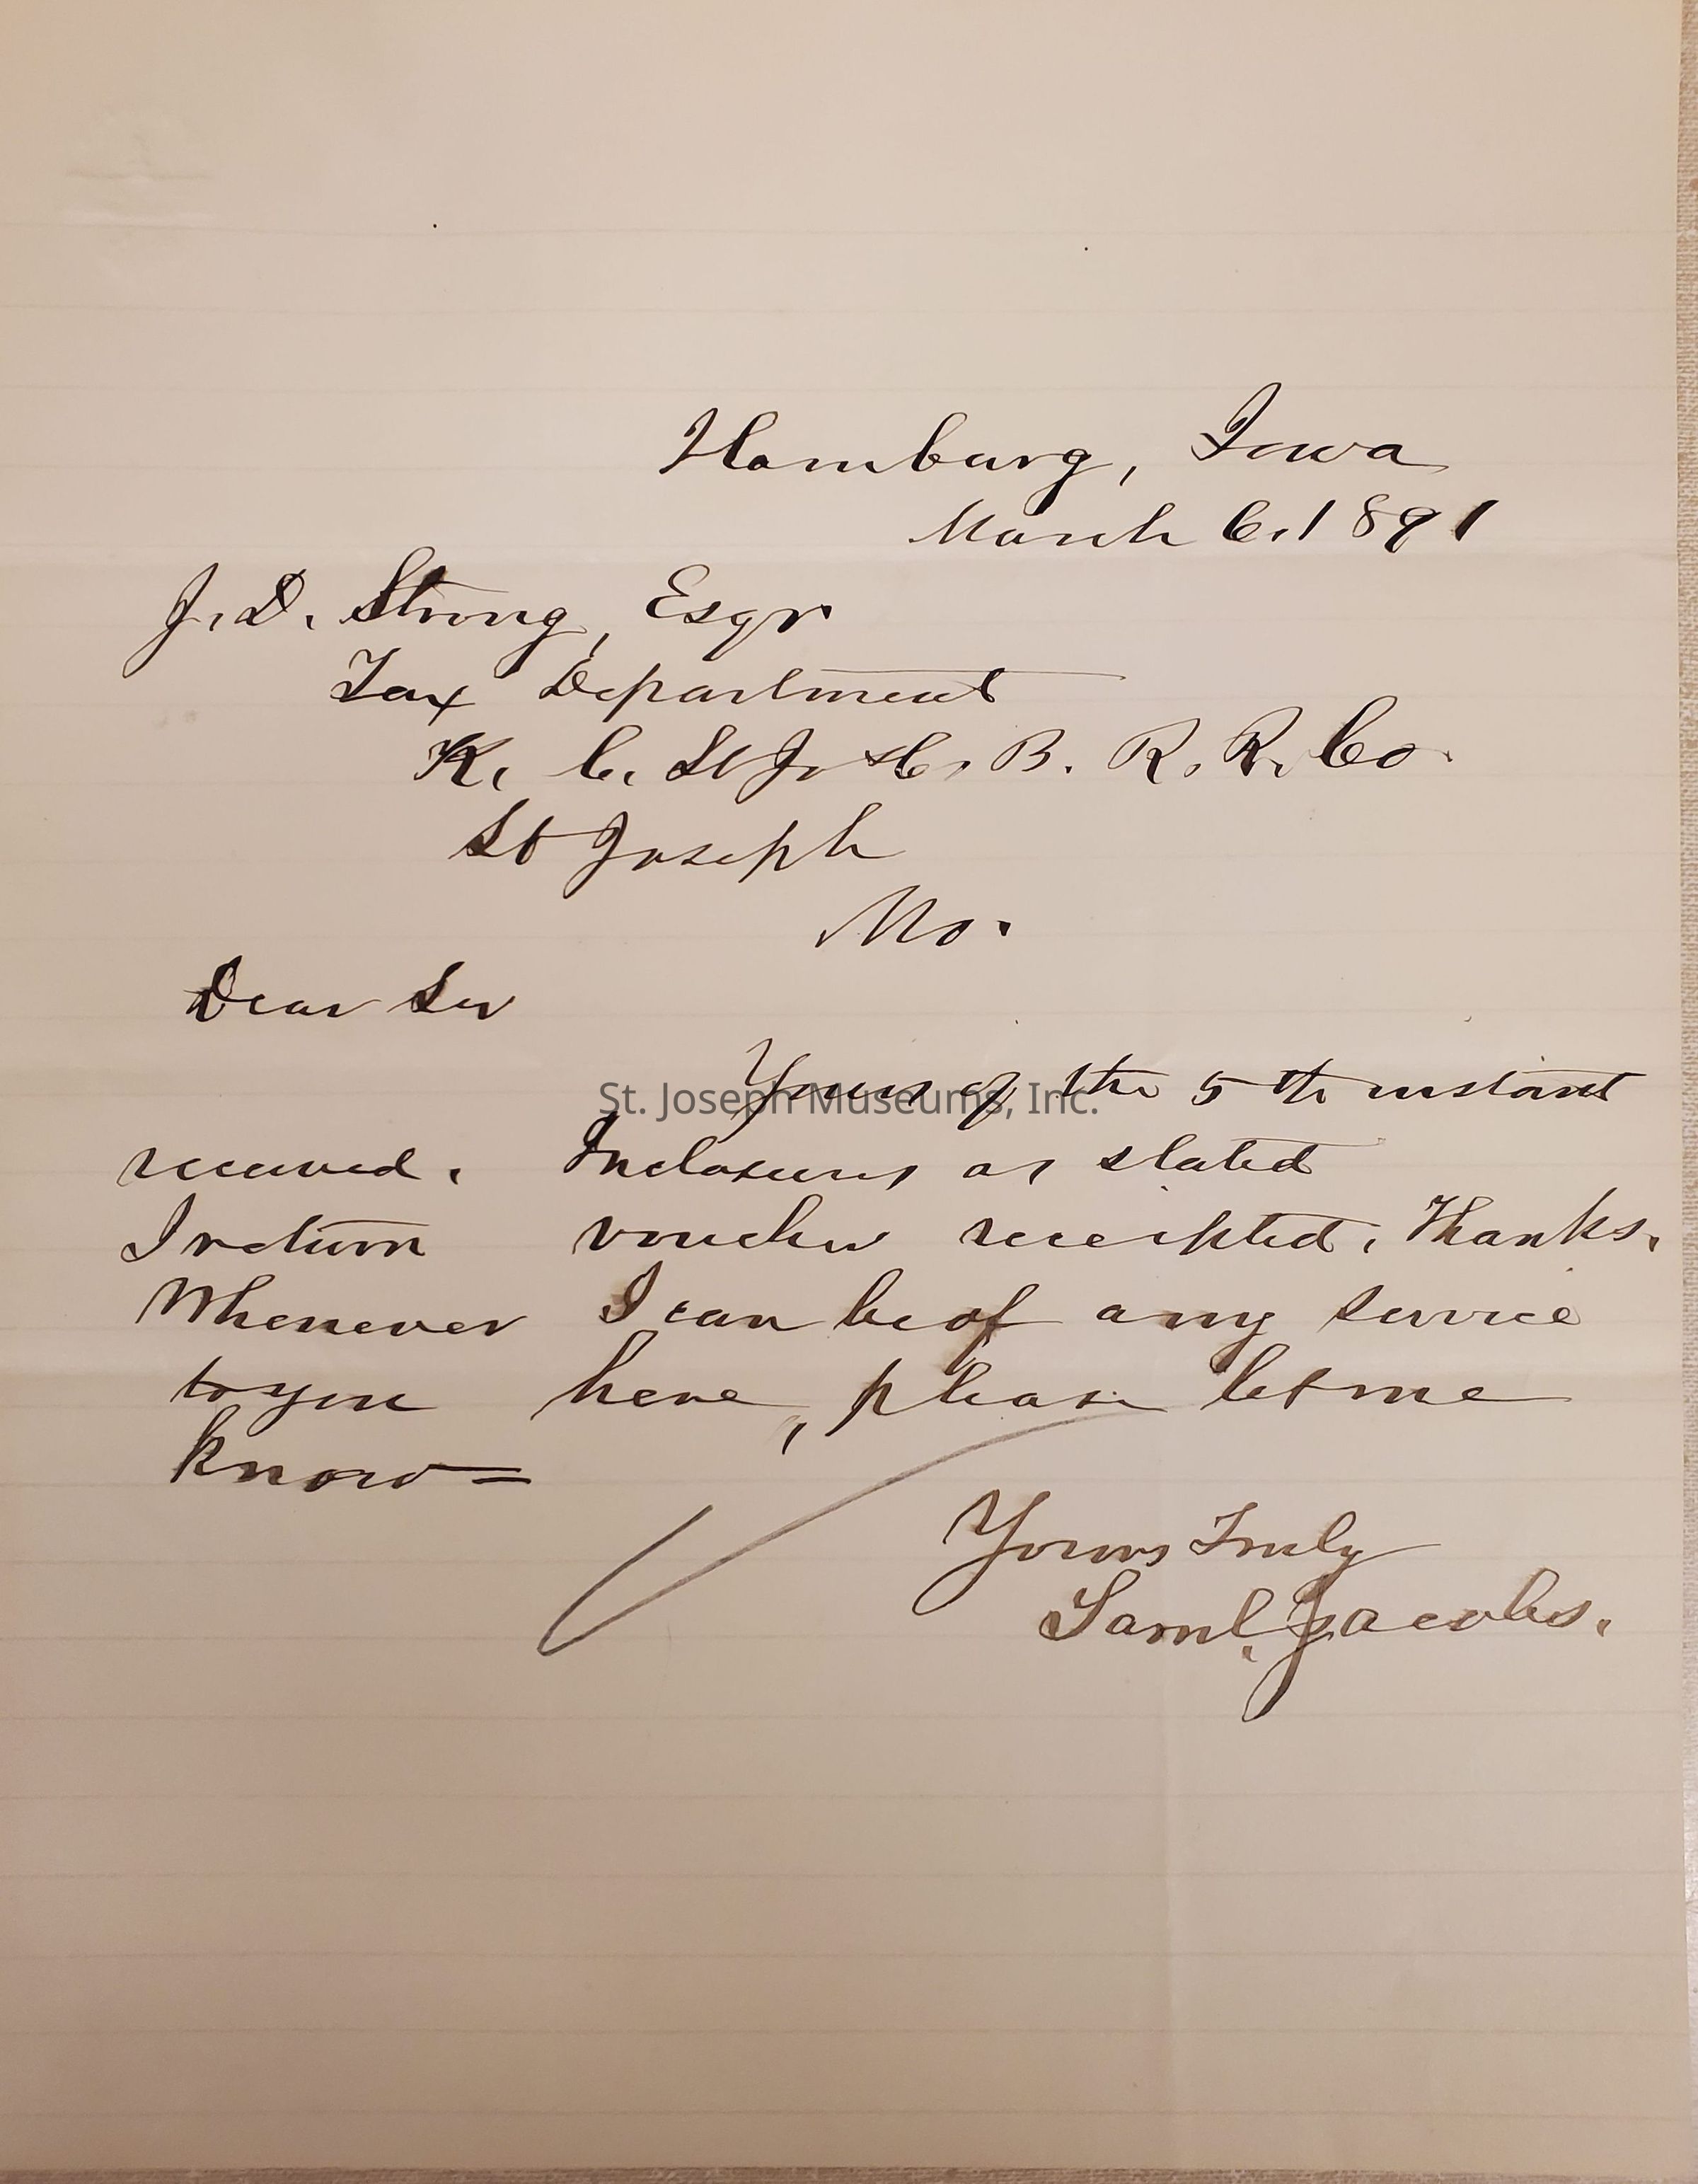 Hamburg, Iowa
March 6. 1891
J. D. Strong, Esqr
Tax Department
K. C. St Jo & C. B. R. R. Co.
St Joseph
Mo.
Dear Sir
Yours of the 5th instant
St. Joseph Museums, Inc.
received. Inclosures as stated
I return voucher receipted. Thanks.
Whenever I can be of any service
to you here, please let me
know =
Yours Truly
Saml. Jacobs.